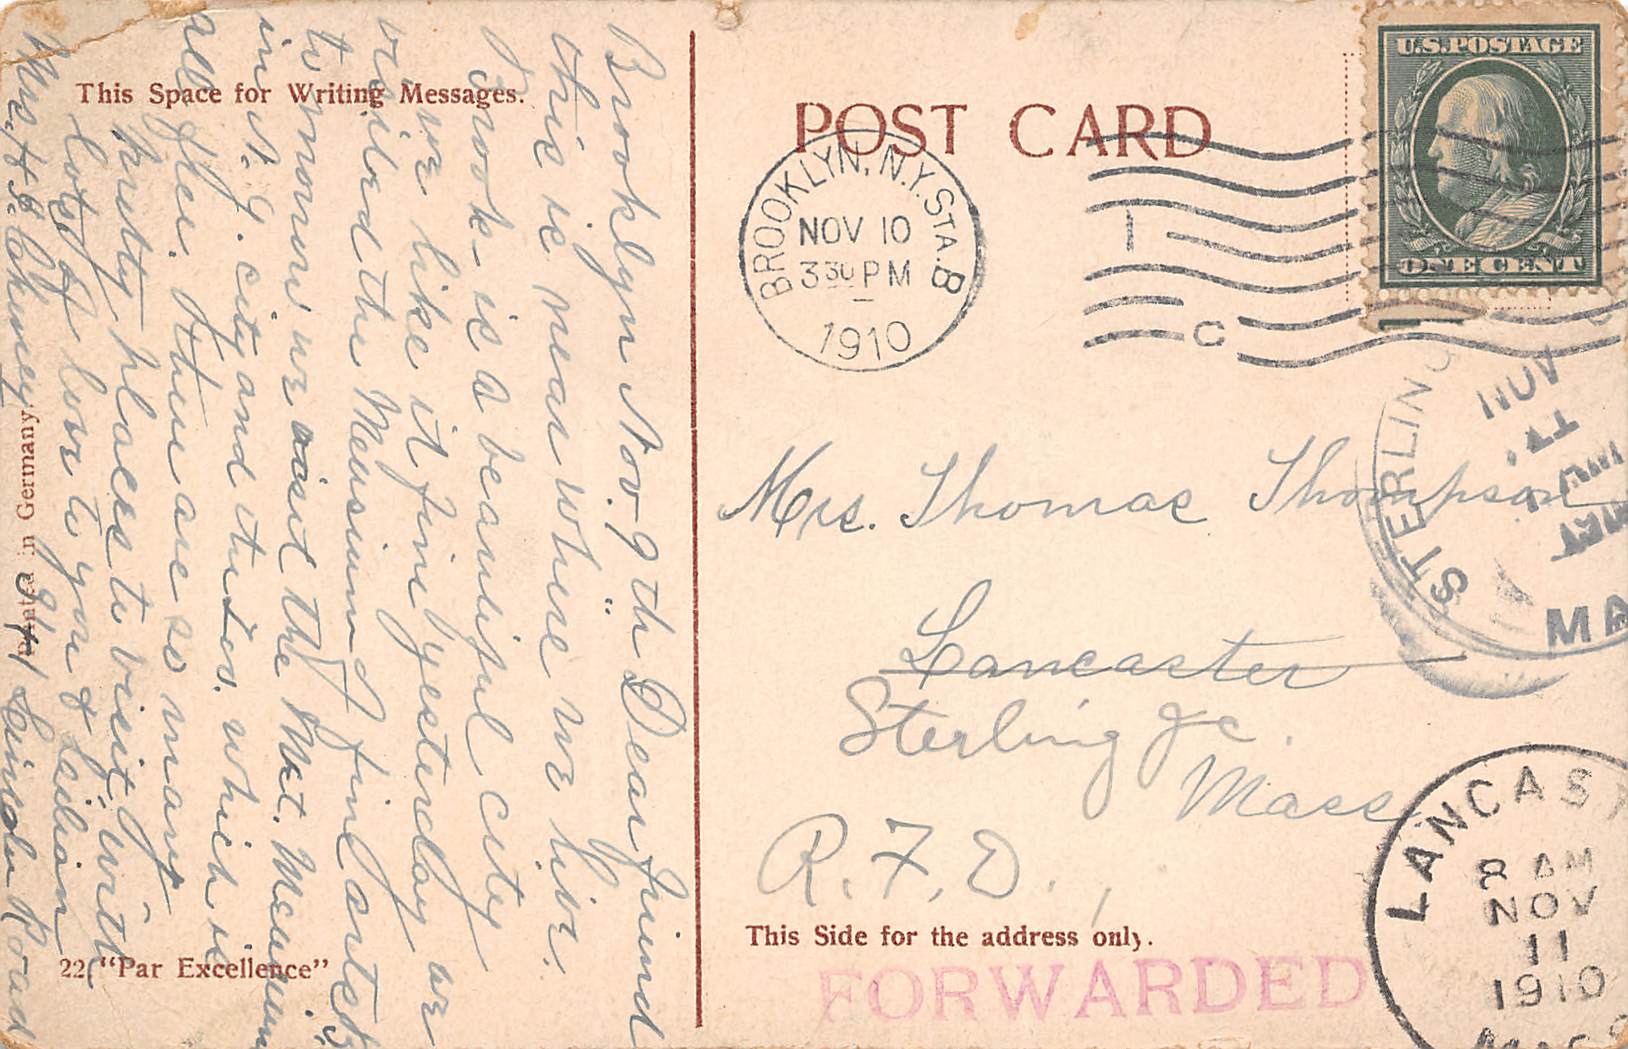 This Space for Writing Messages.
Brooklyn Nov. 9th Dear friend
this is near where we live.
Brook- is a beautiful city
we like it fine yesterday we
visited the Meusium of fine artes
to morrow we visit the Met. Meusium
in N.Y. city and others, which is
all free. there are so many
pretty places to visit, with
lots of love to you & Lillian
Mrs. H. B. Chumey
941 Road
Printed in Germany.
22 "Par Excellence"
POST CARD
BROOKLYN, N.Y. STA. B
NOV 10
3 30 PM
1910
1
C
U.S. POSTAGE
ONE CENT
STERLING
NOV
MA
Mrs. Thomas Thompson
Lancaster
Sterling Jc.
Mass
R.F.D.,
This Side for the address only.
FORWARDED
LANCAST
8 AM
NOV
11
1910
MASS